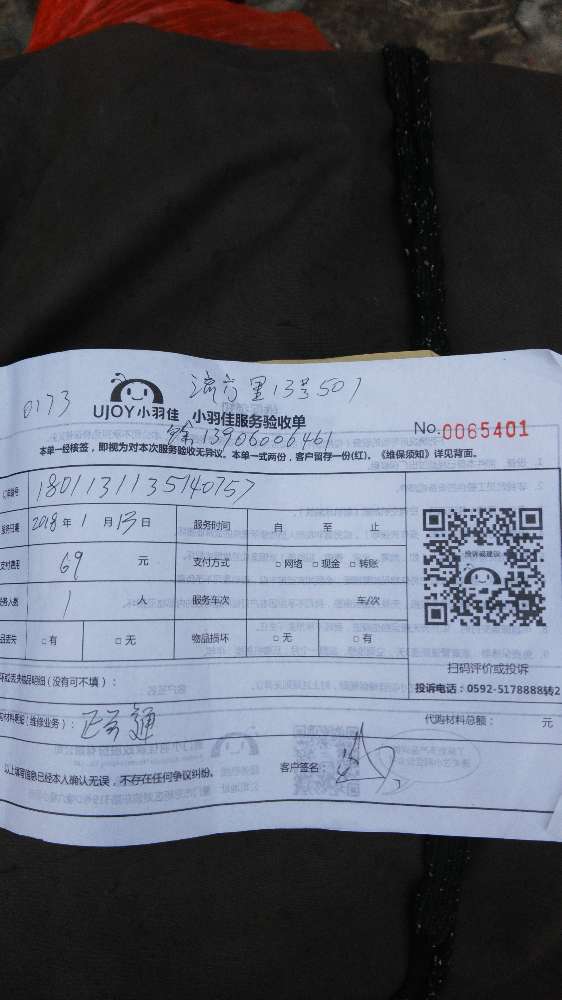 0173
13号501
UJOY小羽佳 小羽佳服务验收单
No.0065401
13906006461
本单一经核签，即视为对本次服务验收无异议。本单一式两份，客户留存一份(红)。《维保须知》详见背面。
订单编号 1801131135140757
服务日期 2018年1月13日 服务时间 自 至 止
支付费用 69 元 支付方式 □网络 □现金 □转账
服务人数 1 人 服务车次 车/次
物品丢失 □有 □无 物品损坏 □无 □有
投诉或建议
扫码评价或投诉
投诉电话：0592-5178888转2
损坏或丢失物品明细(没有可不填)：
(维修业务)： 通
代购材料总额： 元
以上填写信息已经本人确认无误，不存在任何争议纠纷。
客户签名：